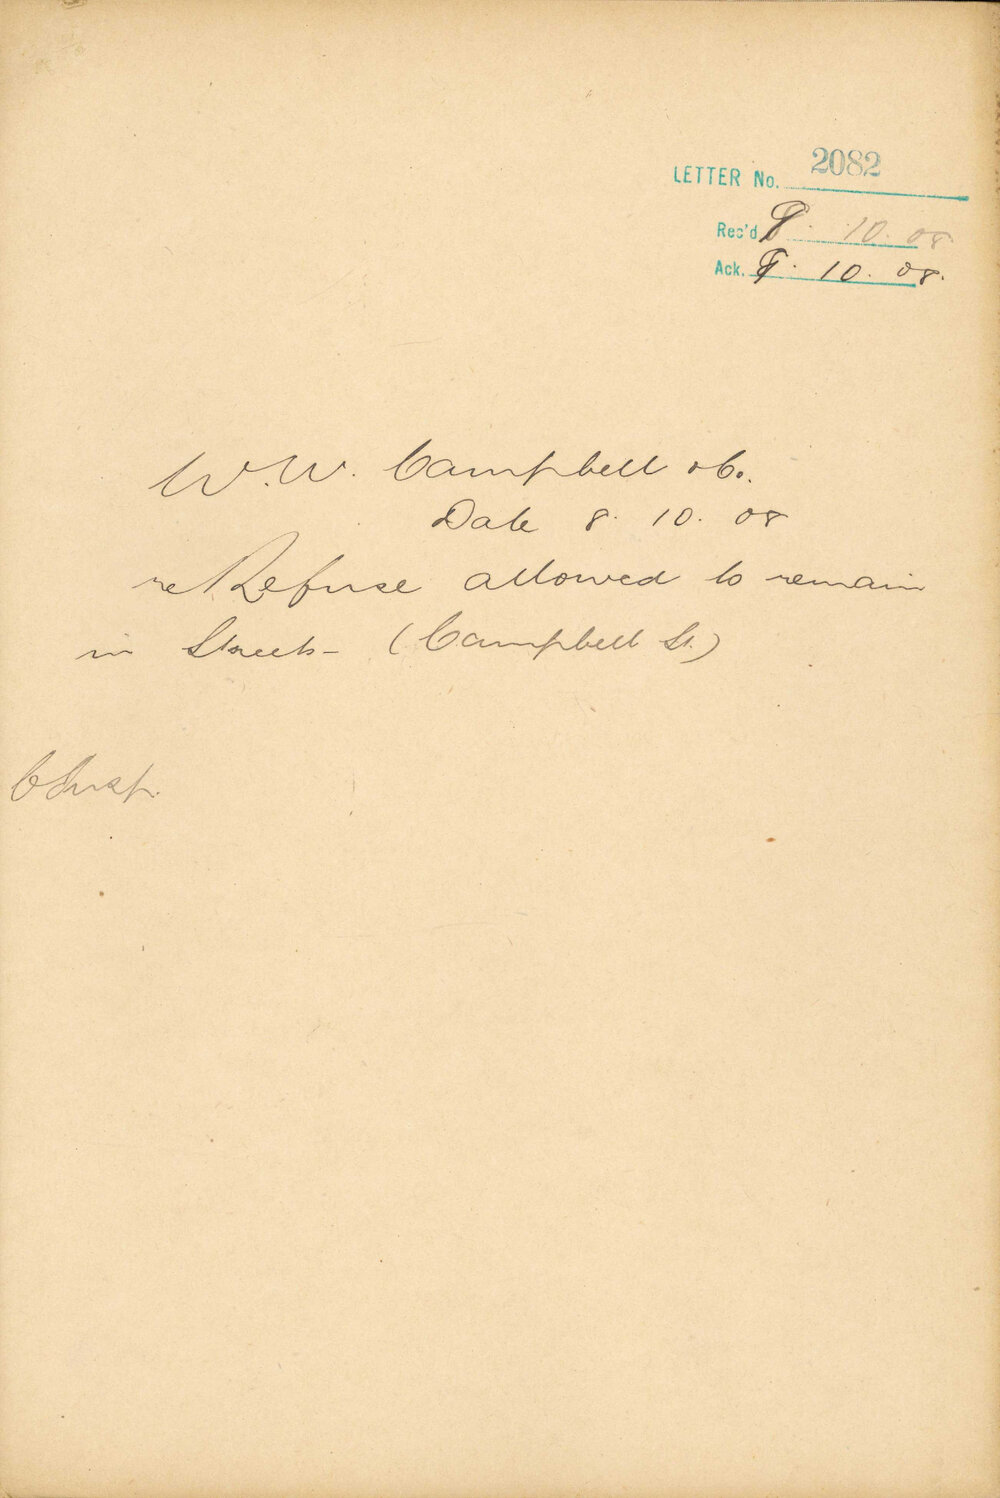 LETTER No. 2082
Rec'd 8. 10. 08
Ack. 9. 10. 08.
W. W. Campbell & Co.
Date 8. 10. 08
re Refuse allowed to remain
in Streets - (Campbell St.)
C Insp.